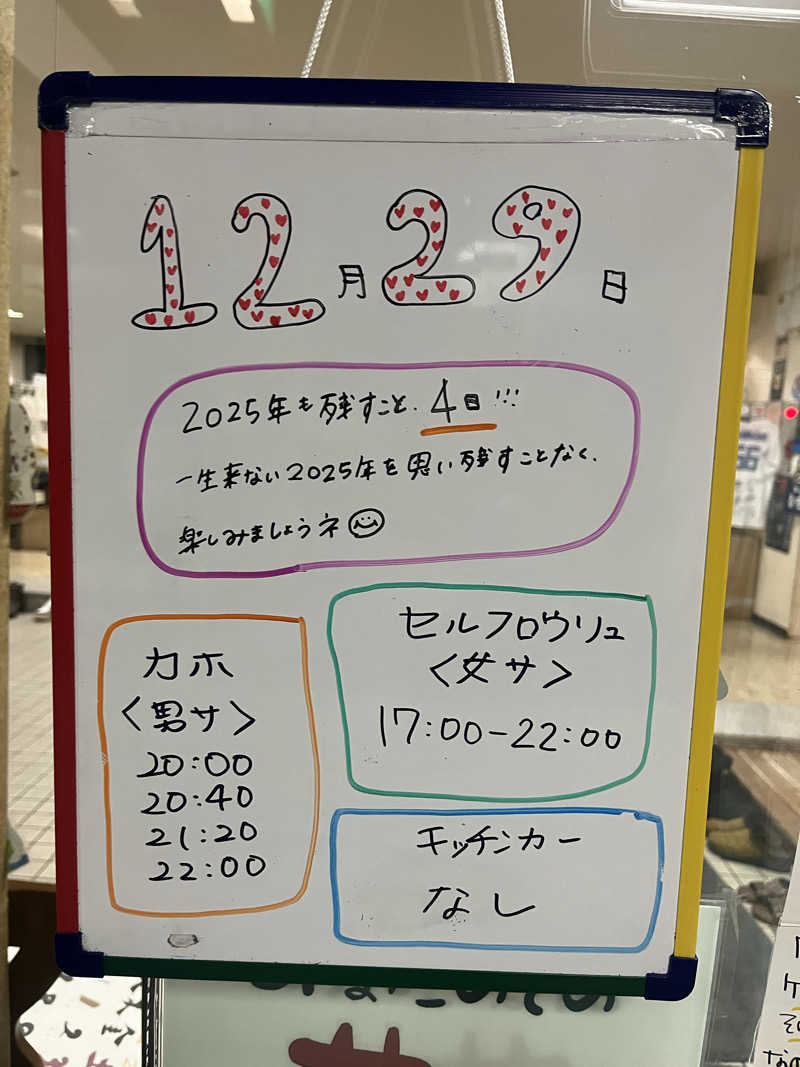 12月29日
2025年も残すこと、4日!!!
一生来ない2025年を思い残すことなく、
楽しみましょうネ
カホ
<男サ>
20:00
20:40
21:20
22:00
セルフロウリュ
<女サ>
17:00-22:00
キッチンカー
なし